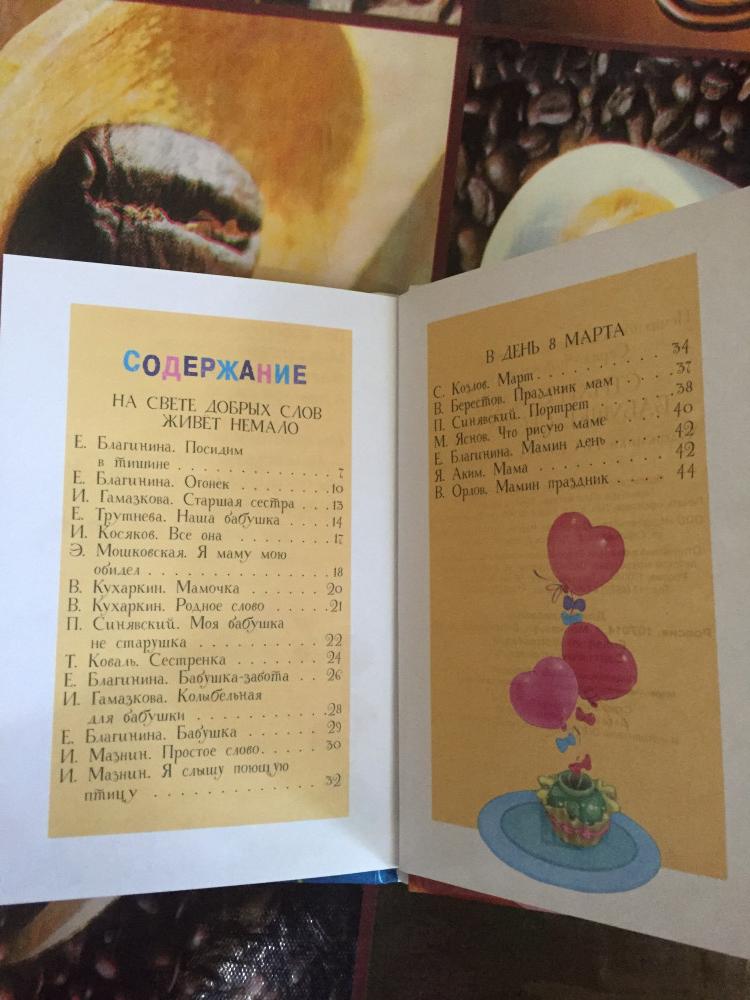 СОДЕРЖАНИЕ
НА СВЕТЕ ДОБРЫХ СЛОВ
ЖИВЕТ НЕМАЛО
Е. Благинина. Посидим
в тишине . . . . . . . . . . . . . 7
Е. Благинина. Огонек . . . . . . . . 10
И. Гамазкова. Старшая сестра . . . 13
Е. Трутнева. Наша бабушка . . . . 14
И. Косяков. Все она . . . . . . . . . 17
Э. Мошковская. Я маму мою
обидел . . . . . . . . . . . . . . . 18
В. Кухаркин. Мамочка . . . . . 20
В. Кухаркин. Родное слово . . . . . 21
П. Синявский. Моя бабушка
не старушка . . . . . . . . . . . 22
Т. Коваль. Сестренка . . . . . . . . 24
Е. Благинина. Бабушка-забота . . 26
И. Гамазкова. Колыбельная
для бабушки . . . . . . . . . . . 28
Е. Благинина. Бабушка . . . . . . 29
И. Мазнин. Простое слово. . . . . 30
И. Мазнин. Я слышу поющую
птицу . . . . . . . . . . . . . . 32
В ДЕНЬ 8 МАРТА
С. Козлов. Март . . . . . . . . . . . 34
В. Берестов. Праздник мам . . . . 37
П. Синявский. Портрет . . . . . . 38
М. Яснов. Что рисую маме . . . . 40
Е. Благинина. Мамин день . . . . . 42
Я. Аким. Мама . . . . . . . . . . . 42
В. Орлов. Мамин праздник . . . . . 44